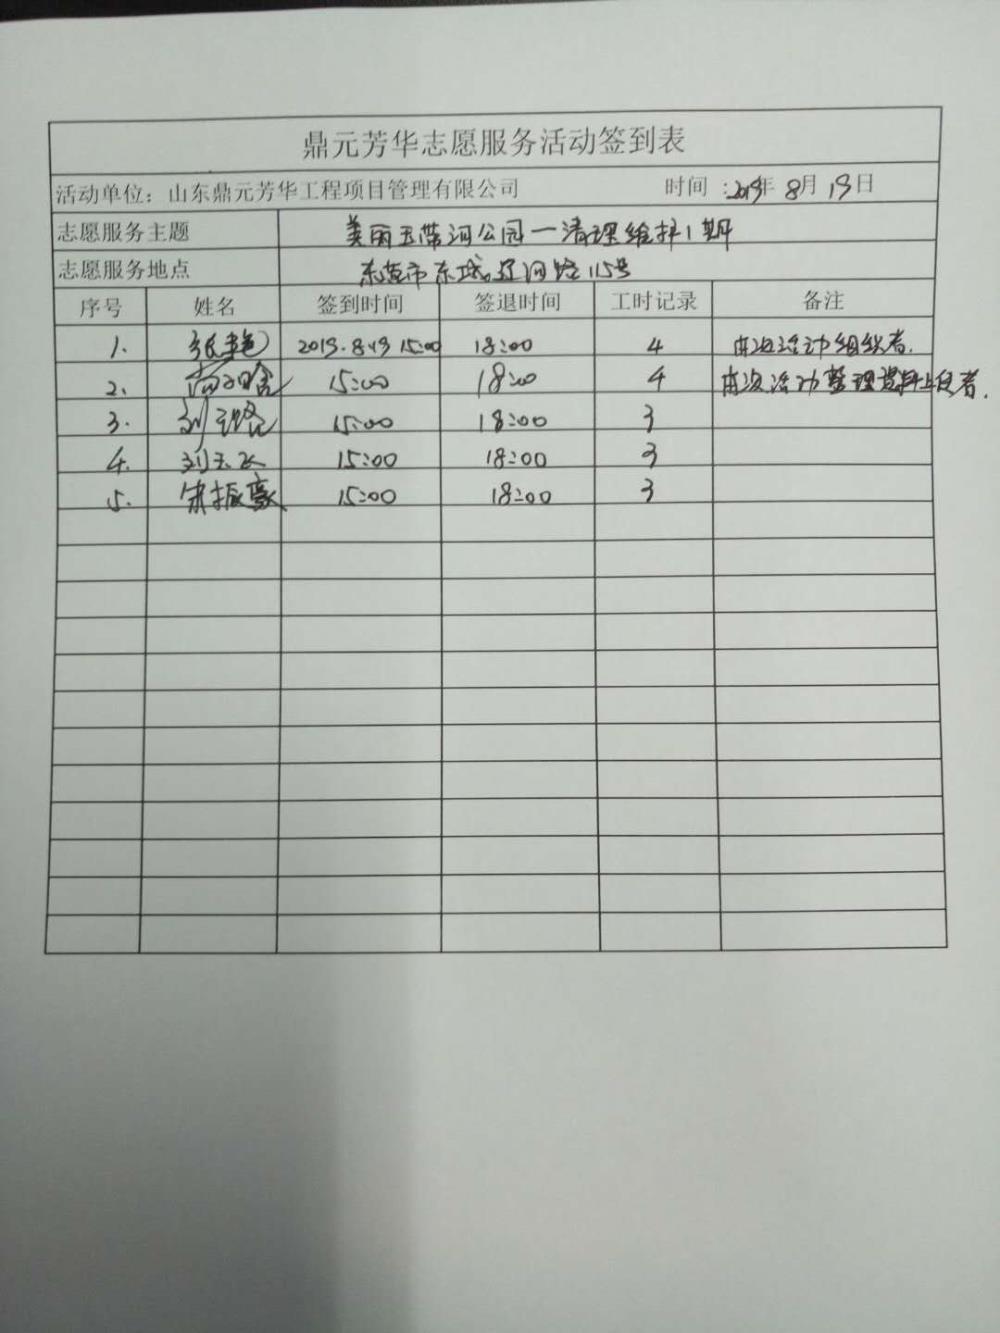 鼎元芳华志愿服务活动签到表
活动单位：山东鼎元芳华工程项目管理有限公司 时间：2019年8月19日
志愿服务主题 美丽玉带河公园一清理维护1期
志愿服务地点 东营市东城辽河路115号
序号 姓名 签到时间 签退时间 工时记录 备注
1. 张 2019.8.19 15:00 18:00 4 本次活动组织者.
2. 15:00 18:00 4 本次活动整理资料上传者.
3. 刘 15:00 18:00 3
4. 刘 15:00 18:00 3
5. 宋振豪 15:00 18:00 3